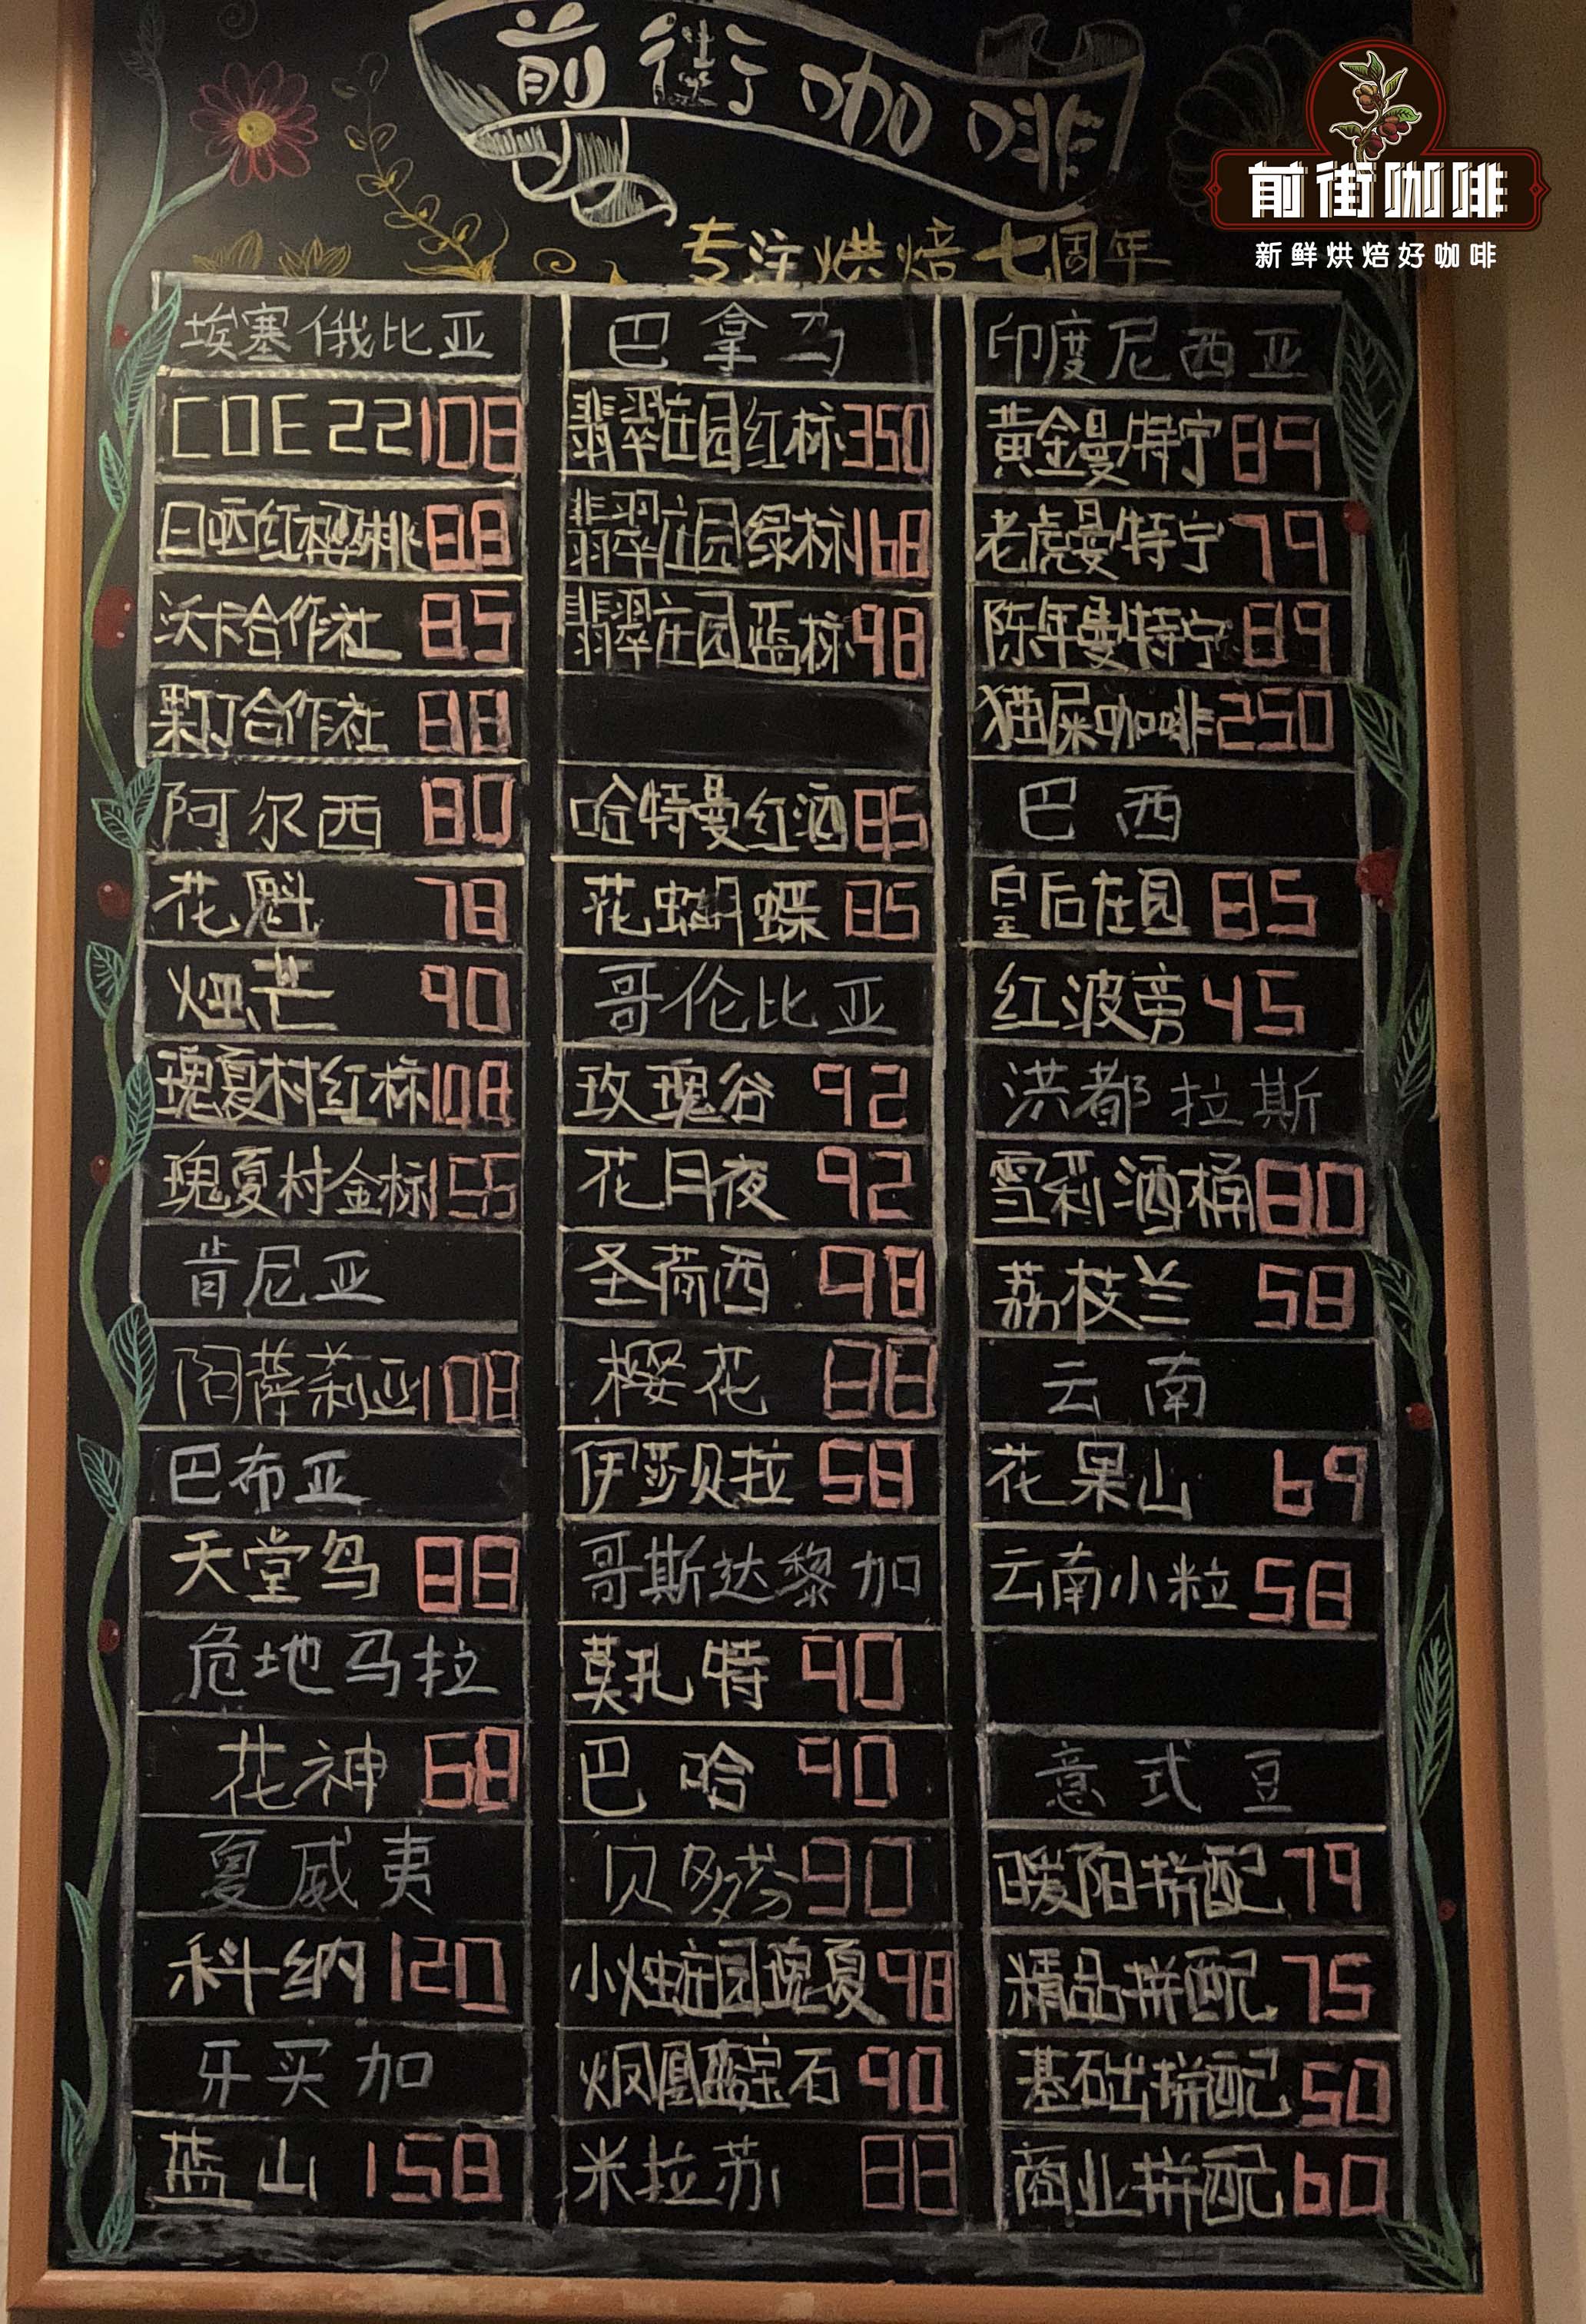 前街咖啡
专注烘焙七周年
前街咖啡
新鲜烘焙好咖啡
埃塞俄比亚
COE22 108
日晒红樱桃 88
沃卡合作社 85
果丁合作社 88
阿尔西 80
花魁 78
烟芒 90
瑰夏村红标 108
瑰夏村金标 155
肯尼亚
阿萨莉亚 108
巴布亚
天堂鸟 88
危地马拉
花神 68
夏威夷
科纳 120
牙买加
蓝山 158
巴拿马
翡翠庄园红标 350
翡翠庄园绿标 168
翡翠庄园蓝标 98
哈特曼红酒 85
花蝴蝶 85
哥伦比亚
玫瑰谷 92
花月夜 92
圣荷西 98
樱花 88
伊莎贝拉 58
哥斯达黎加
莫扎特 90
巴哈 90
贝多芬 90
小烛庄园瑰夏 98
火凤凰蓝宝石 90
米拉苏 88
印度尼西亚
黄金曼特宁 89
老虎曼特宁 79
陈年曼特宁 89
猫屎咖啡 250
巴西
皇后庄园 85
红波旁 45
洪都拉斯
雪莉酒桶 80
荔枝兰 58
云南
花果山 69
云南小粒 58
意式豆
暖阳拼配 79
精品拼配 75
基础拼配 50
商业拼配 60